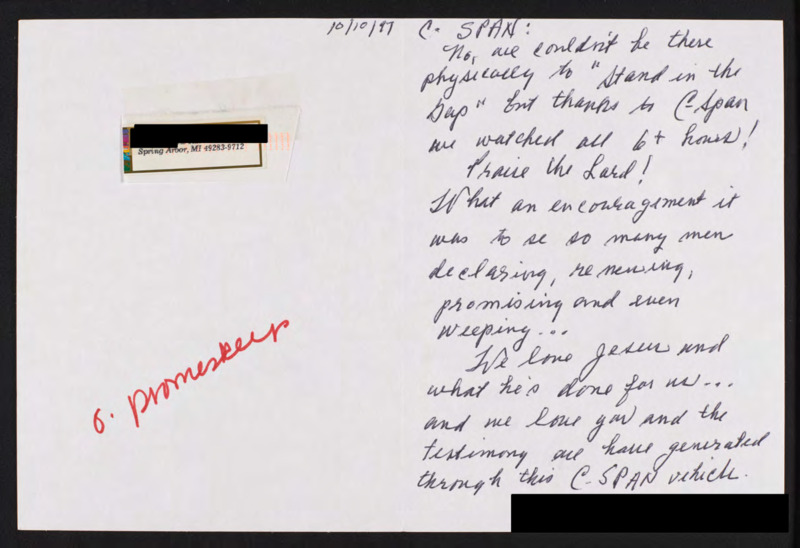 10/10/97
Spring Arbor, MI 49283-9712
6. promeskeep
C-SPAN:
No, we couldn't be there
physically to "Stand in the
Gap" but thanks to C-Span
we watched all 6+ hours!
Praise the Lord!
What an encouragement it
was to se so many men
declaring, renewing,
promising and even
weeping...
We love Jesus and
what he's done for us...
and we love you and the
testimony we have generated
through this C-SPAN vehicle.